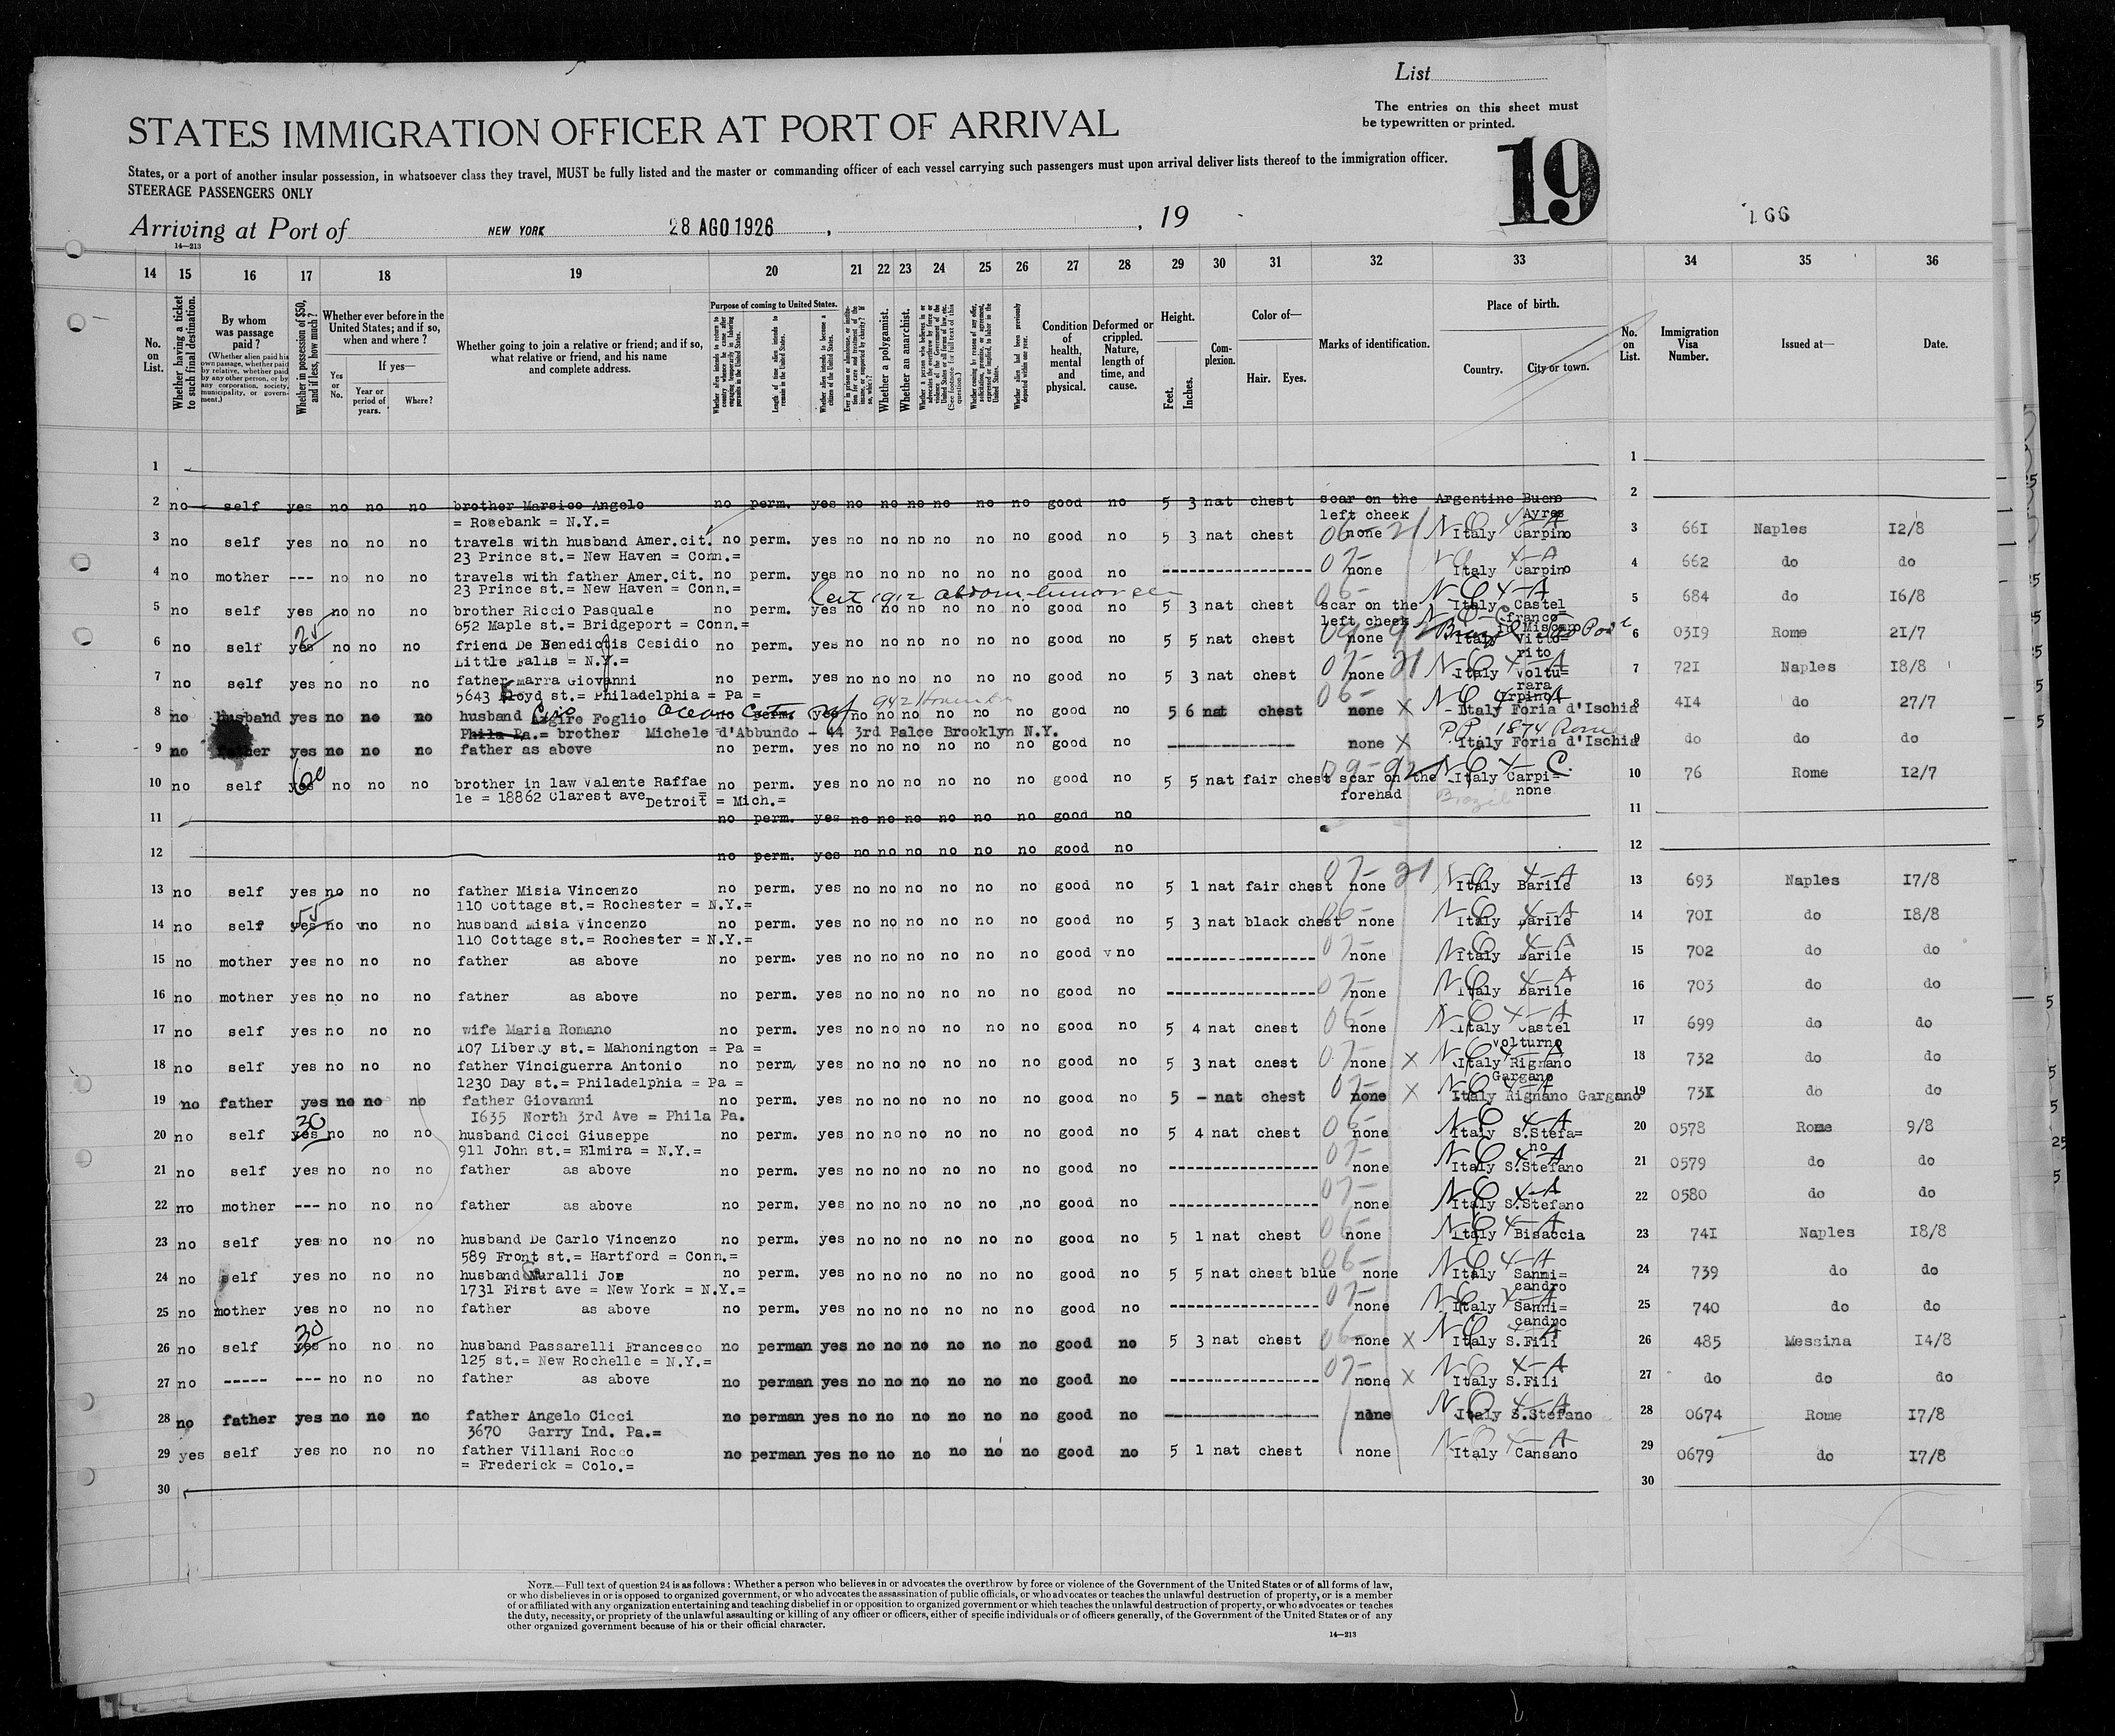 List
The entries on this sheet must
be typewritten or printed.
STATES IMMIGRATION OFFICER AT PORT OF ARRIVAL
19
States, or a port of another insular possession, in whatsoever class they travel, MUST be fully listed and the master or commanding officer of each vessel carrying such passengers must upon arrival deliver lists thereof to the immigration officer.
STEERAGE PASSENGERS ONLY
166
Arriving at Port of NEW YORK 28 AGO 1926 , , 19
14—213
14 15 16 17 18 19 20 21 22 23 24 25 26 27 28 29 30 31 32 33 34 35 36
No. on List.
Whether having a ticket to such final destination.
By whom was passage paid?
(Whether alien paid his own passage, whether paid by relative, whether paid by any other person, or by any corporation, society, municipality, or government.)
Whether in possession of $50, and if less, how much?
Whether ever before in the United States; and if so, when and where?
If yes—
Yes or No.
Year or period of years.
Where?
Whether going to join a relative or friend; and if so, what relative or friend, and his name and complete address.
Purpose of coming to United States.
Whether alien intends to return to country whence he came after engaging temporarily in laboring pursuits in the United States.
Length of time alien intends to remain in the United States.
Whether alien intends to become a citizen of the United States.
Whether a polygamist.
Whether an anarchist.
Whether alien had been previously deported within one year.
Condition of health, mental and physical.
Deformed or crippled. Nature, length of time, and cause.
Height.
Feet.
Inches.
Complexion.
Color of—
Hair.
Eyes.
Marks of identification.
Place of birth.
Country.
City or town.
No. on List.
Immigration Visa Number.
Issued at—
Date.
1 1
2 no self yes no no no brother Marsico Angelo no perm. yes no no no no no no good no 5 3 nat chest scar on the Argentine Buen 2
= Rosebank = N.Y.= left cheek Ayres
3 no self yes no no no travels with husband Amer.cit. no perm. yes no no no no no no good no 5 3 nat chest none Italy Carpino 3 661 Naples 12/8
23 Prince st.= New Haven = Conn.=
4 no mother --- no no no travels with father Amer.cit. no perm. yes no no no no no no good no none Italy Carpino 4 662 do do
23 Prince st.= New Haven = Conn.=
5 no self yes no no no brother Riccio Pasquale no perm. yes no no no no no no good no 5 3 nat chest scar on the Italy Castel 5 684 do 16/8
652 Maple st.= Bridgeport = Conn.= left cheek franco
in Miscano
25
6 no self yes no no no friend De Benedictis Cesidio no perm. yes no no no no no no good no 5 5 nat chest none Italy Vitto= 6 0319 Rome 21/7
Little Falls = N.Y.= rito
7 no self yes no no no father Marra Giovanni no perm. yes no no no no no no good no 5 3 nat chest none Italy Voltu= 7 721 Naples 18/8
5643 Boyd st.= Philadelphia = Pa = rara
Irpino
8 no husband yes no no no husband Foglio Ocean City no perm. yes no no no no no no good no 5 6 nat chest none X Italy Foria d'Ischia 8 414 do 27/7
Phila Pa.= brother Michele d'Abbundo - 44 3rd Palce Brooklyn N.Y.
9 no father yes no no no father as above no perm. yes no no no no no no good no none X Italy Foria d'Ischia 9 do do do
60
10 no self yes no no no brother in law Valente Raffae no perm. yes no no no no no no good no 5 5 nat fair chest scar on the Italy Carpi= 10 76 Rome 12/7
le = 18862 Clarest ave Detroit = Mich.= forehad none
Brazil
11 no perm. yes no no no no no no good no 11
12 no perm. yes no no no no no no good no 12
13 no self yes no no no father Misia Vincenzo no perm. yes no no no no no no good no 5 1 nat fair chest none Italy Barile 13 693 Naples 17/8
110 Cottage st.= Rochester = N.Y.=
14 no self yes no no no husband Misia Vincenzo no perm. yes no no no no no no good no 5 3 nat black chest none Italy Barile 14 701 do 18/8
110 Cottage st.= Rochester = N.Y.=
15 no mother yes no no no father as above no perm. yes no no no no no no good no none Italy Barile 15 702 do do
16 no mother yes no no no father as above no perm. yes no no no no no no good no none Italy Barile 16 703 do do
17 no self yes no no no wife Maria Romano no perm. yes no no no no no no good no 5 4 nat chest none Italy Castel 17 699 do do
107 Liberty st.= Mahonington = Pa = volturno
18 no self yes no no no father Vinciguerra Antonio no perm, yes no no no no no no good no 5 3 nat chest none X Italy Rignano 18 732 do do
1230 Day st.= Philadelphia = Pa = Gargano
19 no father yes no no no father Giovanni no perm. yes no no no no no no good no 5 - nat chest none X Italy Rignano Gargano 19 731 do do
1635 North 3rd Ave = Phila Pa.
30
20 no self yes no no no husband Cicci Giuseppe no perm. yes no no no no no no good no 5 4 nat chest none Italy S.Stefa= 20 0578 Rome 9/8
911 John st.= Elmira = N.Y.= no
21 no self yes no no no father as above no perm. yes no no no no no no good no none Italy S.Stefano 21 0579 do do
22 no mother --- no no no father as above no perm. yes no no no no no no good no none Italy S.Stefano 22 0580 do do
23 no self yes no no no husband De Carlo Vincenzo no perm. yes no no no no no no good no 5 1 nat chest none Italy Bisaccia 23 741 Naples 18/8
589 Front st.= Hartford = Conn.=
24 no self yes no no no husband Guralli Joe no perm. yes no no no no no no good no 5 5 nat chest blue none Italy Sanni= 24 739 do do
1731 First ave = New York = N.Y.= candro
25 no mother yes no no no father as above no perm. yes no no no no no no good no none Italy Sanni= 25 740 do do
candro
30
26 no self yes no no no husband Passarelli Francesco no perman yes no no no no no no good no 5 3 nat chest none X Italy S.Fili 26 485 Messina 14/8
125 st.= New Rochelle = N.Y.=
27 no ----- --- no no no father as above no perman yes no no no no no no good no none X Italy S.Fili 27 do do do
28 no father yes no no no father Angelo Cicci no perman yes no no no no no no good no none Italy S.Stefano 28 0674 Rome 17/8
3670 Garry Ind. Pa.=
29 yes self yes no no no father Villani Rocco no perman yes no no no no no no good no 5 1 nat chest none Italy Cansano 29 0679 do 17/8
= Frederick = Colo.=
30 30
NOTE.—Full text of question 24 is as follows: Whether a person who believes in or advocates the overthrow by force or violence of the Government of the United States or of all forms of law,
or who disbelieves in or is opposed to organized government, or who advocates the assassination of public officials, or who advocates or teaches the unlawful destruction of property, or is a member
of or affiliated with any organization entertaining and teaching disbelief in or opposition to organized government or which teaches the unlawful destruction of property, or who advocates or teaches
the duty, necessity, or propriety of the unlawful assaulting or killing of any officer or officers, either of specific individuals or of officers generally, of the Government of the United States or of any
other organized government because of his or their official character.
14—213